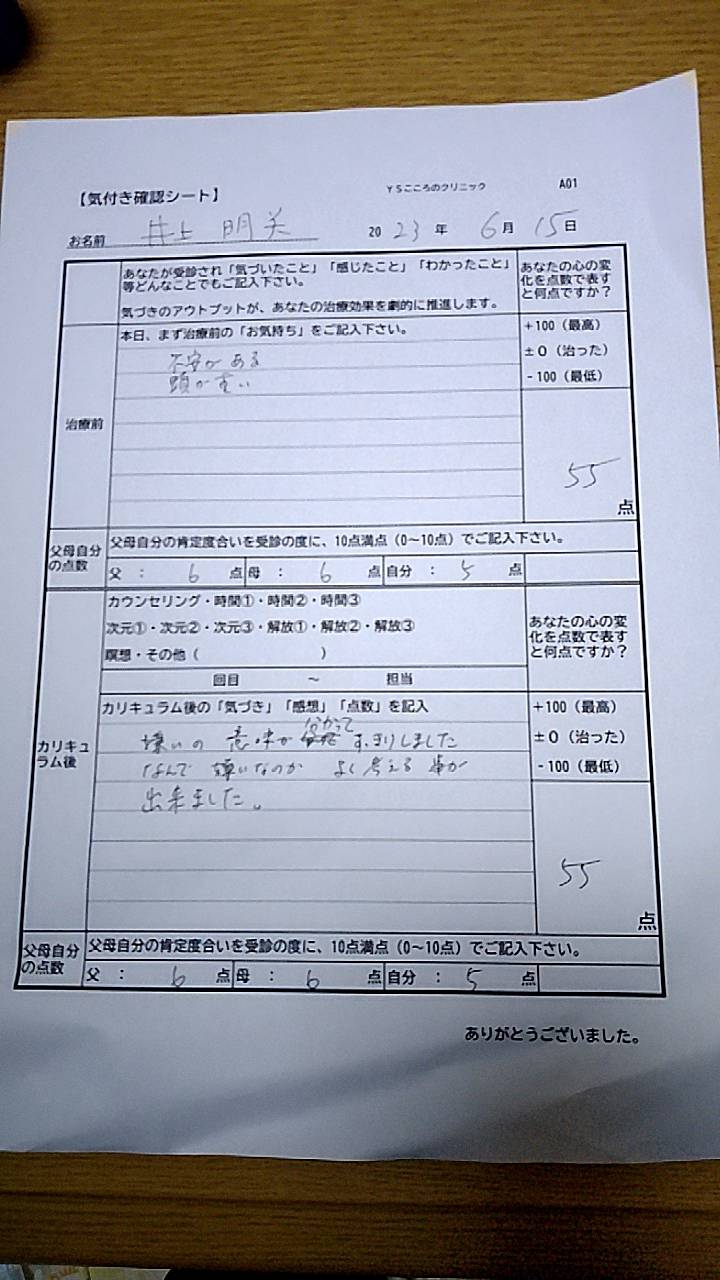 【気付き確認シート】 YSこころのクリニック A01
お名前 井上 明美 2023年 6月 15日
あなたが受診され「気づいたこと」「感じたこと」「わかったこと」
等どんなことでもご記入下さい。
気づきのアウトプットが、あなたの治療効果を劇的に推進します。
あなたの心の変
化を点数で表す
と何点ですか？
治療前
本日、まず治療前の「お気持ち」をご記入下さい。
不安がある
頭が重い
+100（最高）
±0（治った）
-100（最低）
55
点
父母自分
の点数
父母自分の肯定度合いを受診の度に、10点満点（0～10点）でご記入下さい。
父： 6 点 母： 6 点 自分： 5 点
カリキュ
ラム後
カウンセリング・時間①・時間②・時間③
次元①・次元②・次元③・解放①・解放②・解放③
瞑想・その他（ ）
回目 ～ 担当
あなたの心の変
化を点数で表す
と何点ですか？
カリキュラム後の「気づき」「感想」「点数」を記入
嫌いの 意味が 分かって すっきりしました
なんで 嫌いなのか よく考える事が
出来ました。
+100（最高）
±0（治った）
-100（最低）
55
点
父母自分
の点数
父母自分の肯定度合いを受診の度に、10点満点（0～10点）でご記入下さい。
父： 6 点 母： 6 点 自分： 5 点
ありがとうございました。